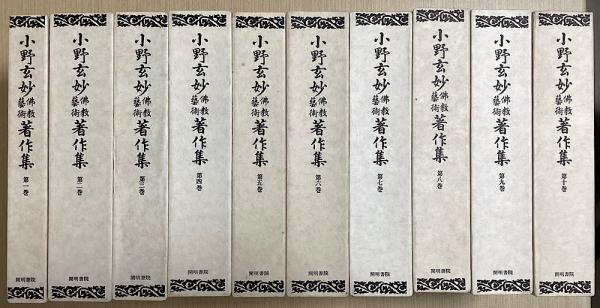 小野玄妙佛教藝術著作集
第一巻
開明書院
小野玄妙佛教藝術著作集
第二巻
開明書院
小野玄妙佛教藝術著作集
第三巻
開明書院
小野玄妙佛教藝術著作集
第四巻
開明書院
小野玄妙佛教藝術著作集
第五巻
開明書院
小野玄妙佛教藝術著作集
第六巻
開明書院
小野玄妙佛教藝術著作集
第七巻
開明書院
小野玄妙佛教藝術著作集
第八巻
開明書院
小野玄妙佛教藝術著作集
第九巻
開明書院
小野玄妙佛教藝術著作集
第十巻
開明書院